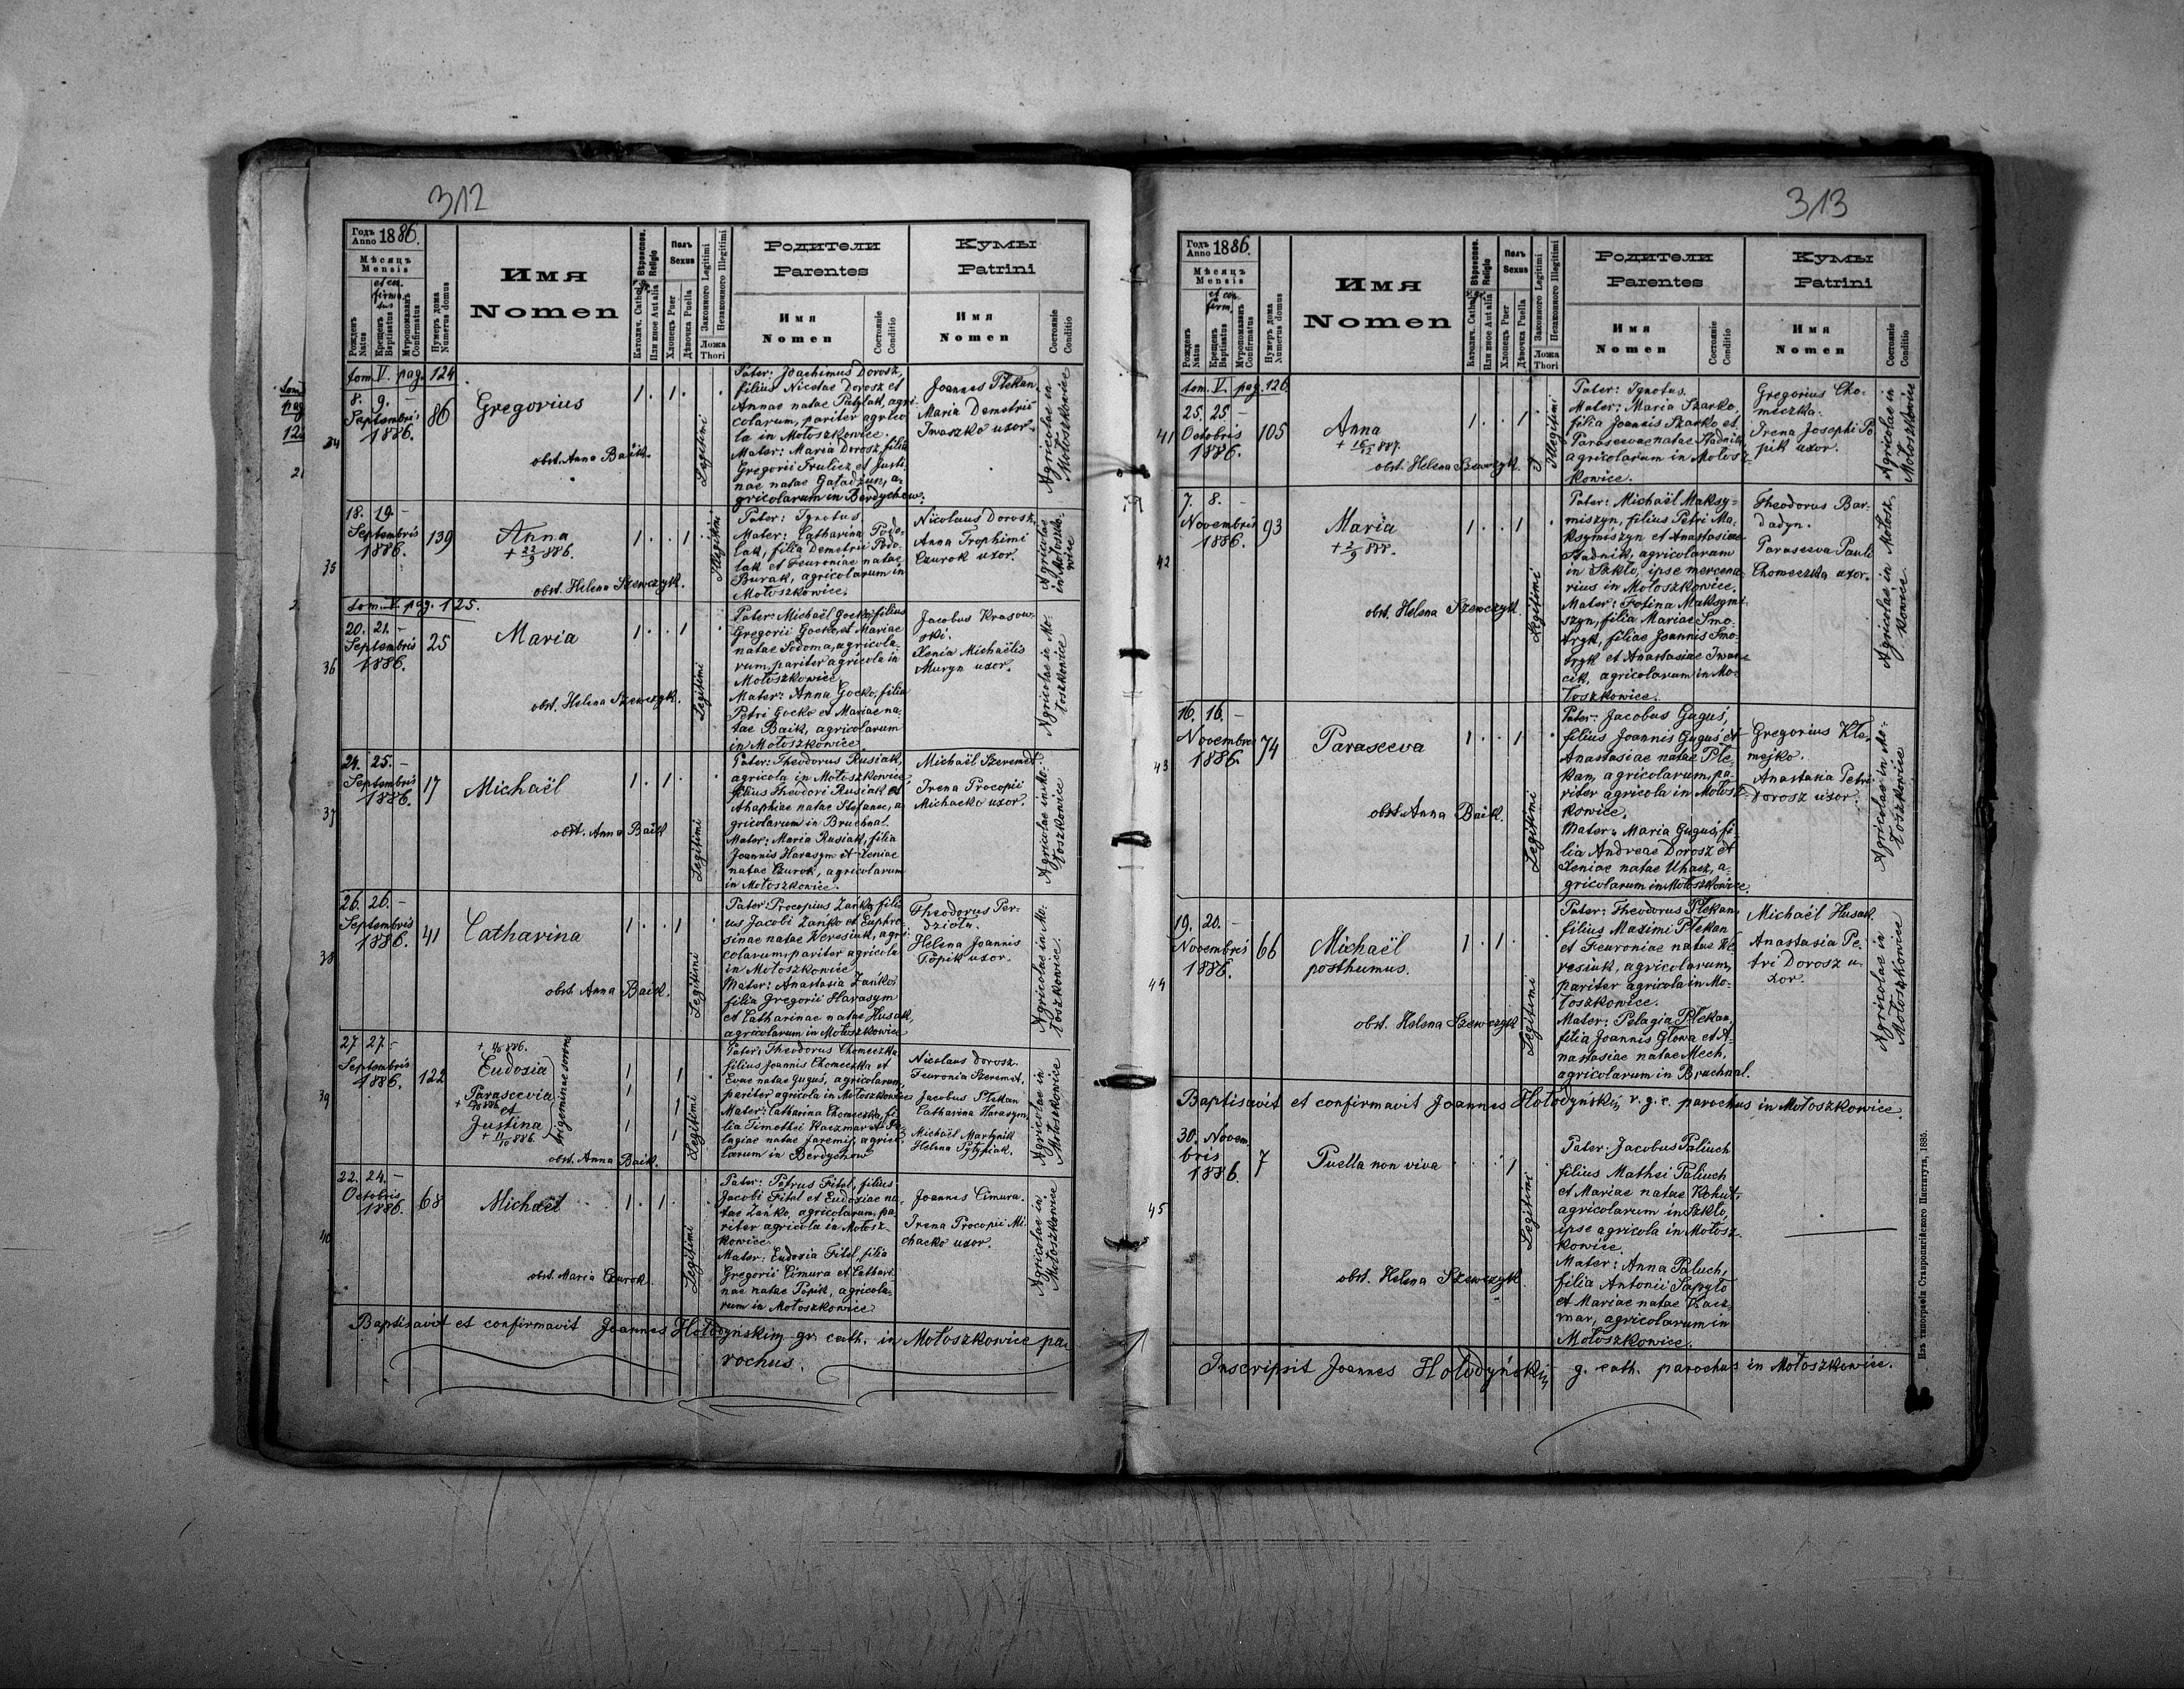 312
Годъ Anno 1886.
Мѣсяцъ Mensis
Рожденъ Natus
Крещенъ Baptisatus
et confirmatus
Муропомазанъ Confirmatus
Нумеръ дома Numerus domus
Имя
Nomen
Вѣроисповѣд. Religio
Католич. Cathol.
Или иное Aut alia
Полъ Sexus
Хлопецъ Puer
Дѣвочка Puella
Законного Legitimi
Незаконного Illegitimi
Ложа Thori
Родители
Parentes
Имя
Nomen
Состояніе Conditio
Кумы
Patrini
Имя
Nomen
Состояніе Conditio
tom. V. pag. 124
34
8. 9. -
Septembris
1886.
86
Gregorius
obst. Anna Baik.
1. 1.
Legitimi
Pater: Joachimus Dorosz,
filius Nicolae Dorosz et
Annae natae Patylak, agri-
colarum, pariter agrico
la in Mołoszkowice.
Mater: Maria Dorosz, filia
Gregorii Frulicz et Justi-
nae natae Gaładżun, a-
gricolarum in Berdychow.
Joannes Plekan.
Maria Demetrii
Iwaszko uxor.
Agricolae in
Mołoszkowice
35
18. 19. -
Septembris
1886.
139
Anna
+ 22/9 886.
obst. Helena Szewczyk.
1. 1
Illegitimi
Pater: Ignotus.
Mater: Catharina Podo-
lak, filia Demetrii Podo-
lak et Feuroniae natae
Burak, agricolarum in
Mołoszkowice.
Nicolaus Dorosz.
Anna Trophimi
Czurok uxor.
Agricolae
in Mołoszko-
wice
tom. V. pag. 125.
36
20. 21. -
Septembris
1886.
25
Maria
obst. Helena Szewczyk.
1. 1
Legitimi
Pater: Michaël Gocko, filius
Gregorii Gocko, et Mariae
natae Sodoma, agricola-
rum, pariter agricola in
Mołoszkowice
Mater: Anna Gocko, filia
Petri Gocko et Mariae na-
tae Baik, agricolarum
in Mołoszkowice
Jacobus Krasow-
ski.
Xenia Michaëlis
Muryn uxor.
Agricolae in Mo-
łoszkowice
37
24. 25. -
Septembris
1886.
17
Michaël
obst. Anna Baik
1. 1.
Legitimi
Pater: Theodorus Rusiak,
agricola in Mołoszkowice
filius Theodori Rusiak et
Ahaphiae natae Stefanec, a
gricolarum in Bruchnal.
Mater: Maria Rusiak, filia
Joannis Harasym et Xeniae
natae Czurok, agricolarum
in Mołoszkowice.
Michaël Szeremet
Irena Procopii
Michacko uxor.
Agricolae in Mo-
łoszkowice
38
26. 26. -
Septembris
1886.
41
Catharina
obst. Anna Baik.
1. 1
Legitimi
Pater: Procopius Zańko, fili
us Jacobi Zańko et Euphro-
sinae natae Weresiuk, agri-
colarum, pariter agricola
in Mołoszkowice
Mater: Anastasia Zańko,
filia Gregorii Harasym
et Catharinae natae Husak,
agricolarum in Mołoszkowice
Theodorus Per-
dzioła.
Helena Joannis
Popik uxor.
Agricolae in Mo-
łoszkowice.
39
27 27. -
Septembris
1886.
122
Eudoxia
Parascevia
et
Justina
+ 11/10 886.
trigeminae sorores
obst. Anna Baik.
Legitimi
Pater: Theodorus Chomeczka
filius Joannis Chomeczka et
Evae natae Guguś, agricolarum,
pariter agricola in Mołoszkowice
Mater: Catharina Chomeczka, fi-
lia Timothei Kaczmar et Pe-
lagiae natae Jaremij, agrico-
larum in Berdychow
Nicolaus Dorosz.
Feuronia Szeremet.
Jacobus Plekan
Catharina Harasym,
Michaël Martynik
Helena Pytypiak.
Agricolae in
Mołoszkowice
40
22. 24. -
Octobris
1886.
68
Michaël
obst. Maria Czurok.
1. 1.
Legitimi
Pater: Petrus Fitel, filius
Jacobi Fitel et Eudoxiae na-
tae Zańko, agricolarum, pa-
riter agricola in Mołosz-
kowice
Mater: Eudoxia Fitel, filia
Gregorii Cimura et Cathari-
nae natae Popik, agricola-
rum in Mołoszkowice
Joannes Cimura.
Irena Procopii Mi-
chacko uxor.
Agricolae in
Mołoszkowice
Baptisavit et confirmavit Joannes Hołodyńskij gr. cath. in Mołoszkowice pa-
rochus.
313
Годъ Anno 1886.
Мѣсяцъ Mensis
Рожденъ Natus
Крещенъ Baptisatus
et confirm.
Муропомазанъ Confirmatus
Нумеръ дома Numerus domus
Имя
Nomen
Вѣроисповѣд. Religio
Католич. Cathol.
Или иное Aut alia
Полъ Sexus
Хлопецъ Puer
Дѣвочка Puella
Законного Legitimi
Незаконного Illegitimi
Ложа Thori
Родители
Parentes
Имя
Nomen
Состояніе Conditio
Кумы
Patrini
Имя
Nomen
Состояніе Conditio
tom. V. pag. 126
41
25. 25 -
Octobris
1886.
105
Anna
+ 16/12 887.
obst. Helena Szewczyk.
1. 1
Illegitimi
Pater: Ignotus.
Mater: Maria Szarko,
filia Joannis Szarko et
Parascevae natae Stadnik,
agricolarum in Mołosz-
kowice.
Gregorius Cho-
meczka.
Irena Josephi Po
pik uxor.
Agricolae in
Mołoszkowice
42
7. 8. -
Novembris
1886.
93
Maria
+ 2/9 888.
obst. Helena Szewczyk
1. 1
Legitimi
Pater: Michaël Maksy-
miszyn, filius Petri Ma-
ksymiszyn et Anastasiae
Stadnik, agricolarum
in Szkło, ipse mercena-
rius in Mołoszkowice.
Mater: Fotina Maksymi-
szyn, filia Mariae Smo-
tryk, filiae Joannis Smo-
tryk et Anastasiae Iwan-
cik, agricolarum in Mo-
łoszkowice.
Theodorus Bar-
dadyn.
Parasceva Pauli
Chomeczka uxor.
Agricolae in Mołosz-
kowice.
43
16. 16. -
Novembris
1886.
74
Parasceva
obst. Anna Baik.
1. 1
Legitimi
Pater: Jacobus Guguś,
filius Joannis Guguś et
Anastasiae natae Ple-
kan, agricolarum, pa-
riter agricola in Mołosz-
kowice.
Mater: Maria Guguś, fi-
lia Andreae Dorosz et
Xeniae natae Uhacz, a-
gricolarum in Mołoszkowice
Gregorius Kle-
mejko.
Anastasia Petri
Dorosz uxor.
Agricolae in Mo-
łoszkowice
44
19. 20. -
Novembris
1886.
66
Michaël
posthumus.
obst. Helena Szewczyk
1. 1.
Legitimi
Pater: Theodorus Plekan,
filius Maximi Plekan
et Feuroniae natae We
resiuk, agricolarum,
pariter agricola in Mo-
łoszkowice.
Mater: Pelagia Plekan,
filia Joannis Głowa et A-
nastasiae natae Mech,
agricolarum in Bruchnal.
Michaël Husak.
Anastasia Pe-
tri Dorosz u-
xor.
Agricolae in
Mołoszkowice
Baptisavit et confirmavit Joannes Hołodyńskij, r. g. c. parochus in Mołoszkowice.
45
30. Novem-
bris
1886.
7
Puella non viva
obst. Helena Szewczyk.
1
Legitimi
Pater: Jacobus Paliuch
filius Mathei Paliuch
et Mariae natae Kohut,
agricolarum in Szkło,
ipse agricola in Mołosz-
kowice.
Mater: Anna Paluch,
filia Antonii Sapyło
et Mariae natae Kacz-
mar, agricolarum in
Mołoszkowice.
Inscripsit Joannes Hołodyńskij, g. cath. parochus in Mołoszkowice.
Изъ типографіи Ставропигійского Института, 1885.